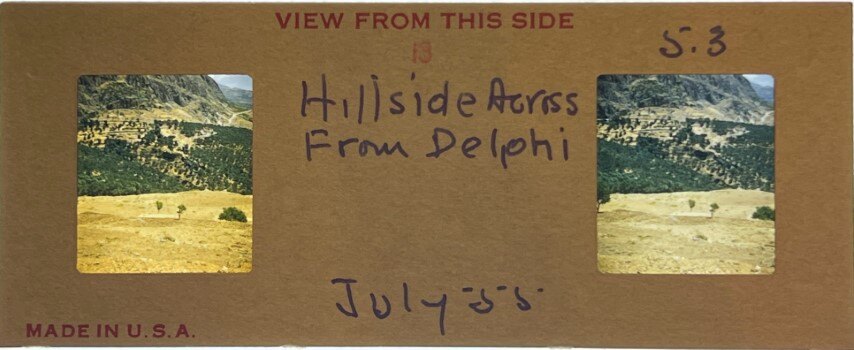 VIEW FROM THIS SIDE
13
5.3
Hillside Across
From Delphi
July-55
MADE IN U.S.A.